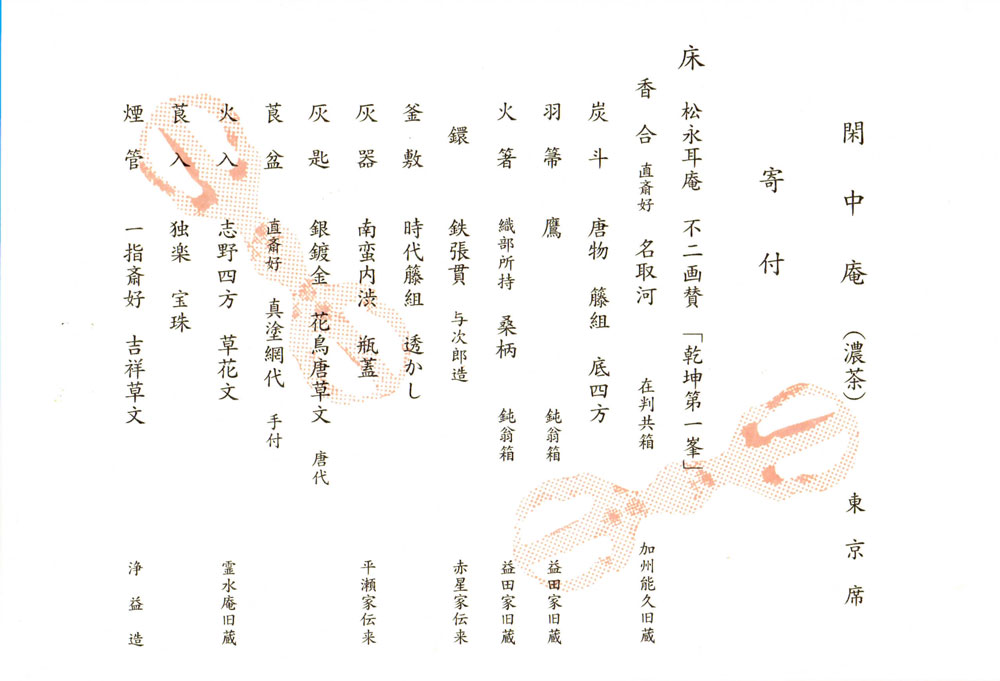 閑中庵（濃茶）　東京席
寄付
床　松永耳庵　不二画賛　「乾坤第一峯」
香合　直斎好　名取河　在判共箱　加州能久旧蔵
炭斗　唐物　籐組　底四方
羽箒　鷹　鈍翁箱　益田家旧蔵
火箸　織部所持　桑柄　鈍翁箱　益田家旧蔵
鐶　鉄張貫　与次郎造　赤星家伝来
釜敷　時代籐組　透かし
灰器　南蛮内渋　瓶蓋　平瀬家伝来
灰匙　銀鍍金　花鳥唐草文　唐代
莨盆　直斎好　真塗網代　手付
火入　志野四方　草花文　霊水庵旧蔵
莨入　独楽　宝珠
煙管　一指斎好　吉祥草文　浄益造